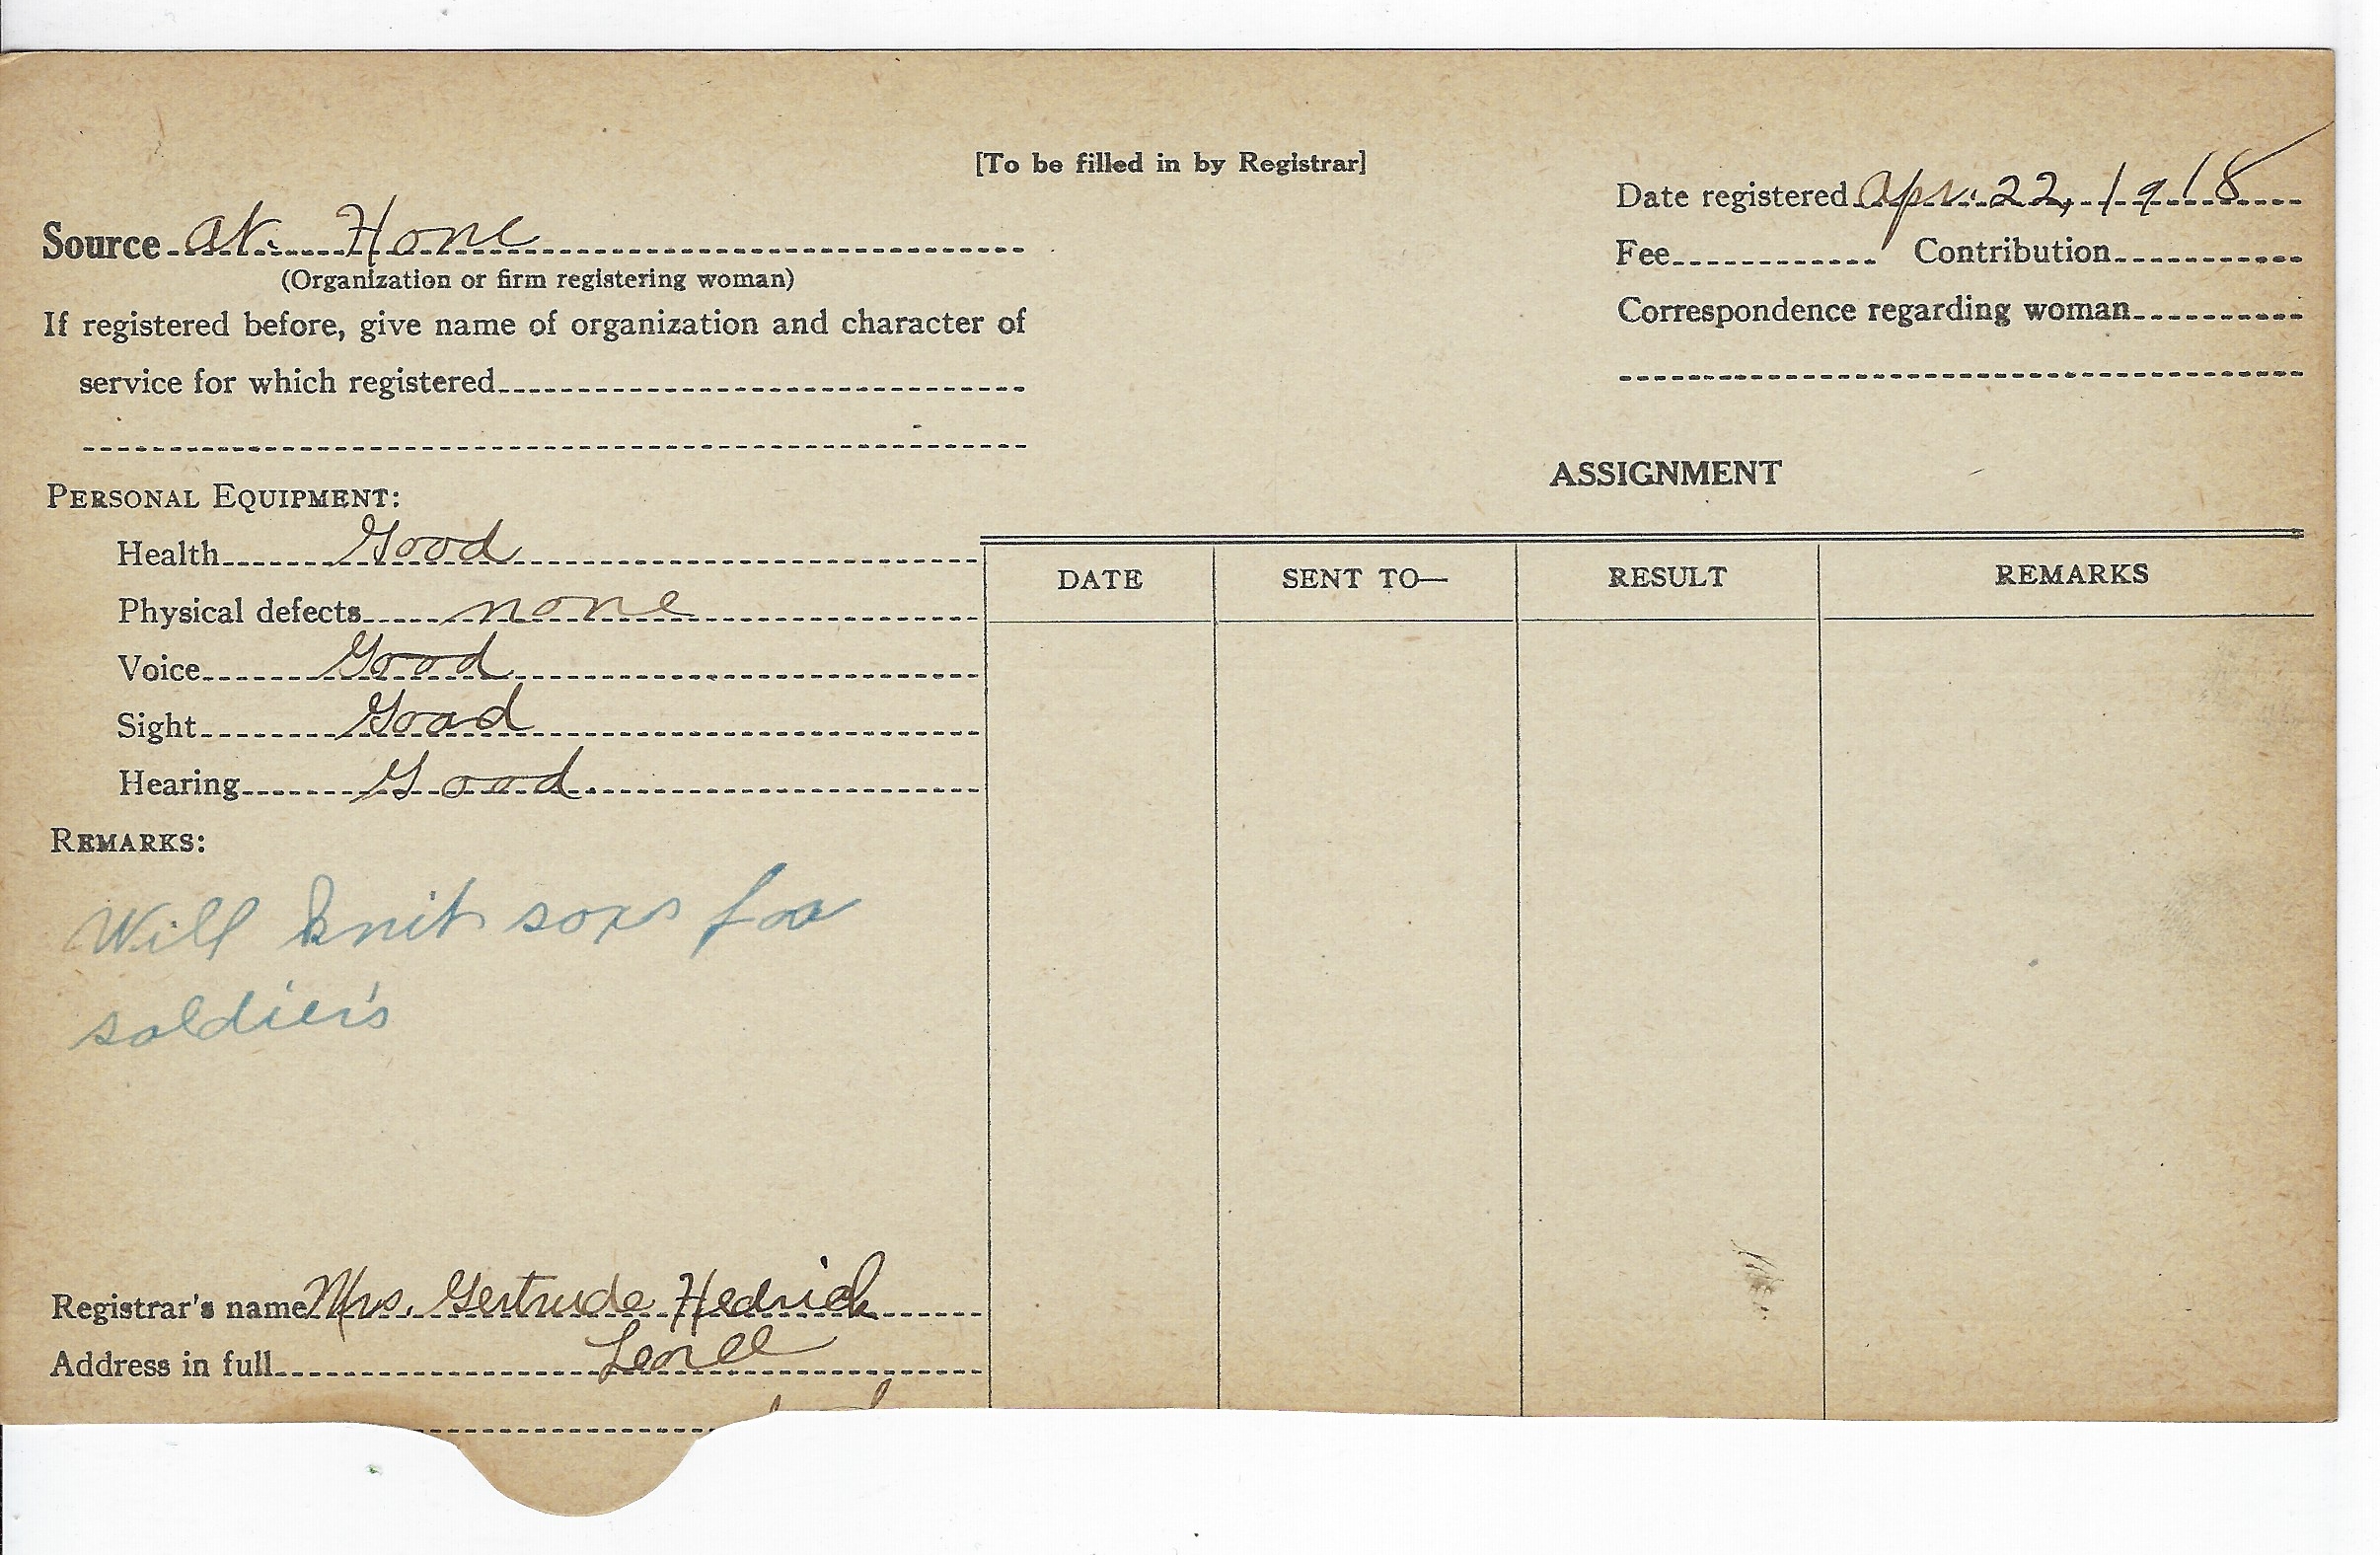 [To be filled in by Registrar]
Date registered Apr. 22, 1918
Source at Home
(Organization or firm registering woman)
Fee Contribution
If registered before, give name of organization and character of
Correspondence regarding woman
service for which registered
ASSIGNMENT
PERSONAL EQUIPMENT:
Health Good
DATE SENT TO— RESULT REMARKS
Physical defects none
Voice Good
Sight Good
Hearing Good
REMARKS:
Will knit soxs for
soldier's
Registrar's name Mrs. Gertrude Hedrick
Address in full